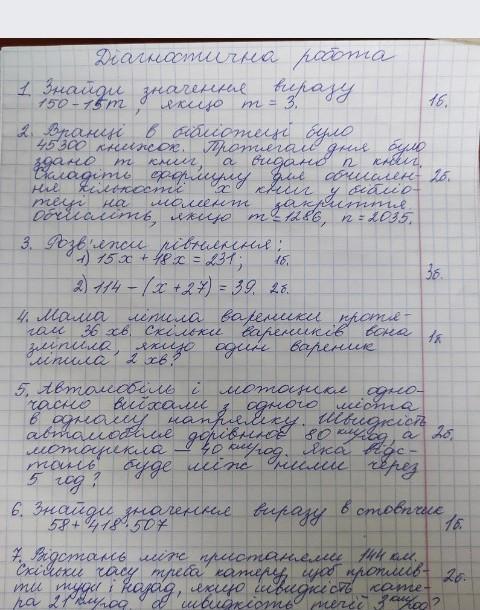 Діагностична робота
1. Знайди значення виразу
150 - 15m, якщо m = 3. 1б.
2. Вранці в бібліотеці було
45300 книжок. Протягом дня було
здано m книг, а видано n книг.
Складіть формулу для обчислен-
ня кількості x книг у бібліо- 2б.
теці на момент закриття.
Обчисліть, якщо m = 1286, n = 2035.
3. Розв'яжи рівняння:
1) 15x + 48x = 231; 1б.
3б.
2) 114 - (x + 27) = 39. 2б.
4. Мама ліпила вареники протя-
гом 36 хв. Скільки вареників вона 1б
зліпила, якщо один вареник
ліпила 2 хв?
5. Автомобіль і мотоцикл одно-
часно виїхали з одного міста
в одному напрямку. Швидкість
автомобіля дорівнює 80 км/год, а 2б.
мотоцикла - 40 км/год. Яка відс-
тань буде між ними через
5 год?
6. Знайди значення виразу в стовпчик
58 + 418 · 507 1б.
7. Відстань між пристанями 144 км.
Скільки часу треба катеру, щоб проплив- 2б.
ти туди і назад, якщо швидкість кате-
ра 21 км/год, а швидкість течії 3 км/год?